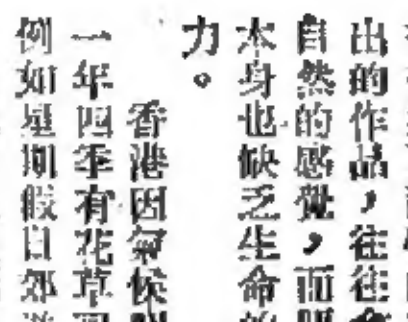 出的作品，往往
自然的感覺，而
本身也缺乏生命
力。
香港因氣候
一年四季有花草
例如星期假日郊